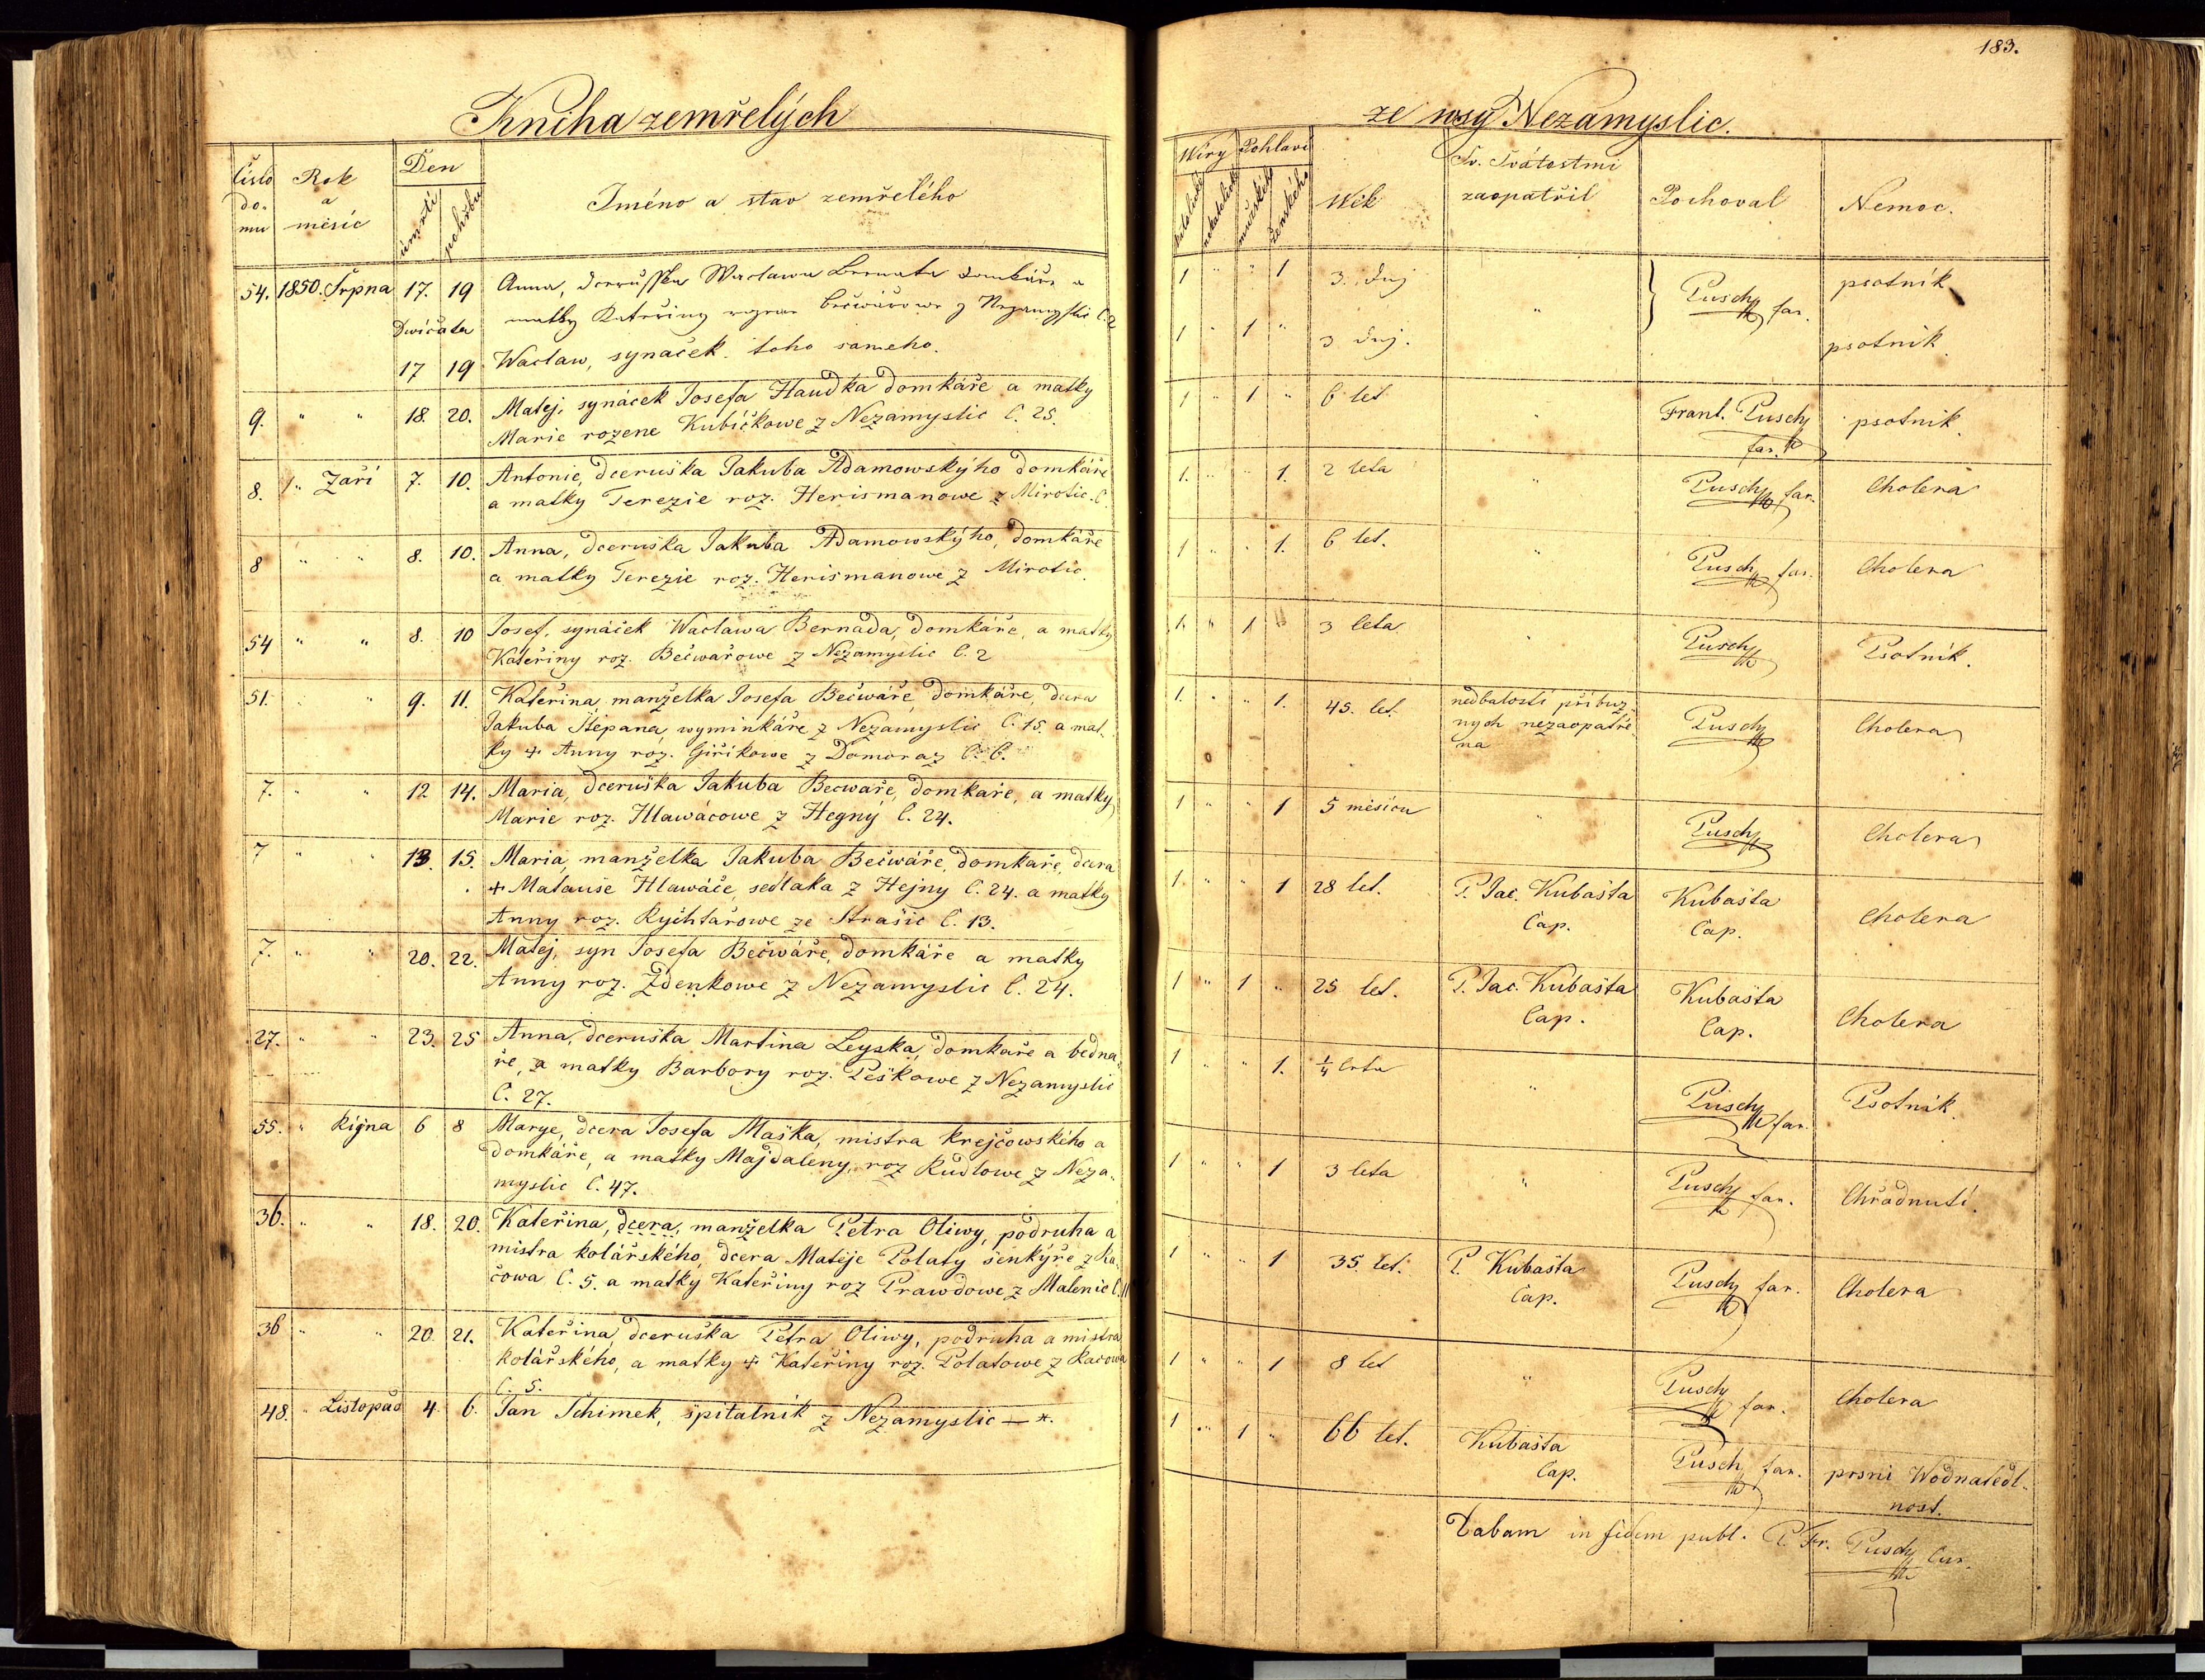 183.
Kniha zemřelých
ze wsy Nezamyslic.
Číslo do- mu
Rok a měsíc
Den
úmrtí
pohřbu
Jméno a stav zemřelého
Wíry
katolické
nekatolické
Pohlaví
mužského
ženského
Wěk
Sv. Svátostmi zaopatřil
Pochoval
Nemoc.
54. 1850. Srpna 17. 19 Anna, dceruška Waclawa Bernata domkáře a
Dwíčata matky Kateřiny rozene Bečwářowe z Nezamyslic C. 2
1 " " 1 3. dny " Pusch far. psotník
17 19 Waclaw, synáček toho sameho.
1 " 1 " 3 dny. psotník
9. " " 18. 20. Matej, synáček Josefa Haudka domkáře a matky
Marie rozene Kubíčkowe z Nezamyslic C. 25.
1 " 1 " 6 let " Frant. Pusch far. psotník.
8. " Září 7. 10. Antonie, dceruška Jakuba Adamowskýho domkáře
a matky Terezie roz. Herismanowe z Mirotic. C.
1. " 1. 2 leta " Pusch far. Cholera
8 " " 8. 10. Anna, dceruška Jakuba Adamowskýho, domkáře
a matky Terezie roz. Herismanowe z Mirotic.
1 " " 1. 6 let. " Pusch far. Cholera
54 " " 8. 10 Josef, synáček Waclawa Bernada, domkáře, a matky
Kateřiny roz. Bečwařowe z Nezamyslic C. 2
1. " 1 " 3 leta " Pusch Psotník.
51. " " 9. 11. Kateřina, manželka Josefa Bečwáře, domkáře, dcera
Jakuba Štěpana, wyminkáře z Nezamyslic C. 15. a mat-
ky + Anny roz. Giříkowe z Domoraz C. 6.
1. " 1. 45. let. nedbalostí příbuz-
nych nezaopatře
na
Pusch Cholera
7. " " 12 14. Maria, dceruška Jakuba Bečwáře, domkaře, a matky
Marie roz. Hlawáčowe z Hegný C. 24.
1 " " 1 5 měsíců " Pusch Cholera
7 " " 13. 15. Maria, manželka Jakuba Bečwáře, domkaře, dcera
+ Matauše Hlawáče, sedlaka z Hejny C. 24. a matky
Anny roz. Rychtařowe ze Strašic C. 13.
1 " " 1 28 let. P. Jac. Kubašta Cap. Kubašta Cap. Cholera
7. " " 20. 22. Matej, syn Josefa Bečwáře, domkáře a matky
Anny roz. Zdenkowe z Nezamyslic C. 24.
1 " 1 " 25 let. P. Jac. Kubašta Cap. Kubašta Cap. Cholera
27. " " 23. 25 Anna, dceruška Martina Leyska, domkaře a bedna-
ře, a matky Barbory roz. Peškowe z Nezamyslic
C. 27.
1 " " 1. ¼ leta " Pusch far. Psotník.
55. " Října 6 8 Marye, dcera Josefa Maška, mistra krejčowského a
domkáře, a matky Majdaleny, roz Rudlowe z Neza-
myslic C. 47.
1 " " 1 3 leta " Pusch far. Chřadnutí.
36. " " 18. 20. Kateřina, dcera, manželka Petra Oliwy, podruha a
mistra kolářského, dcera Matěje Polaty šenkýře z Ra-
čowa C. 5. a matky Kateřiny roz Prawdowe z Malenic C. 11
1 " 1 35 let. P. Kubašta Cap. Pusch far. Cholera
36 " " 20. 21. Kateřina, dceruška Petra Oliwy, podruha a mistra
kolářského, a matky + Kateřiny roz. Polatowe z Račowa
C. 5.
1 " " 1 8 let " Pusch far. Cholera
48. " Listopad 4. 6. Jan Schimek, špitalník z Nezamyslic —
1 " 1 " 66 let. Kubašta Cap. Pusch far. prsní Wodnatedl-
nost.
Dabam in fidem publ. P. Fr. Pusch Cur.